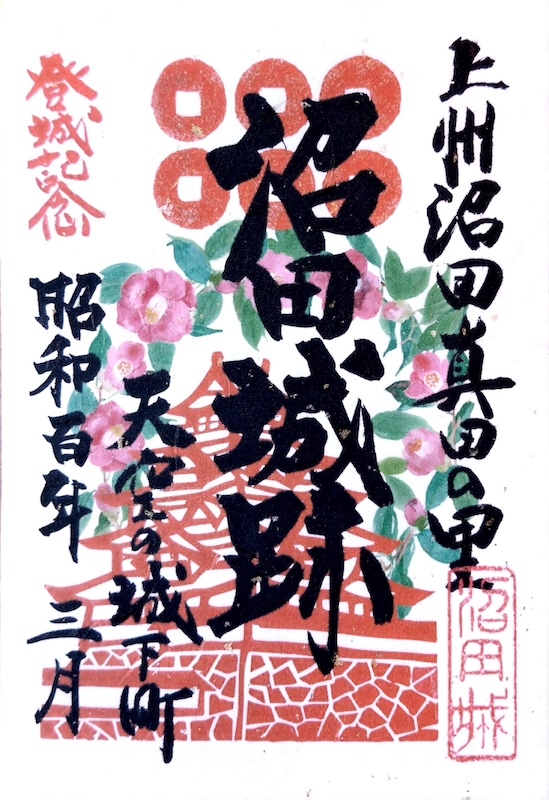 上州沼田真田の里
沼田城
沼田城跡
天空の城下町
登城記念
昭和百年 三月